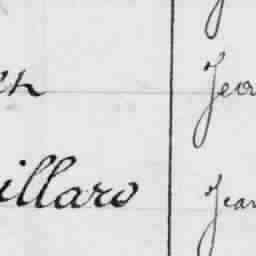 en Jea
illard Jean